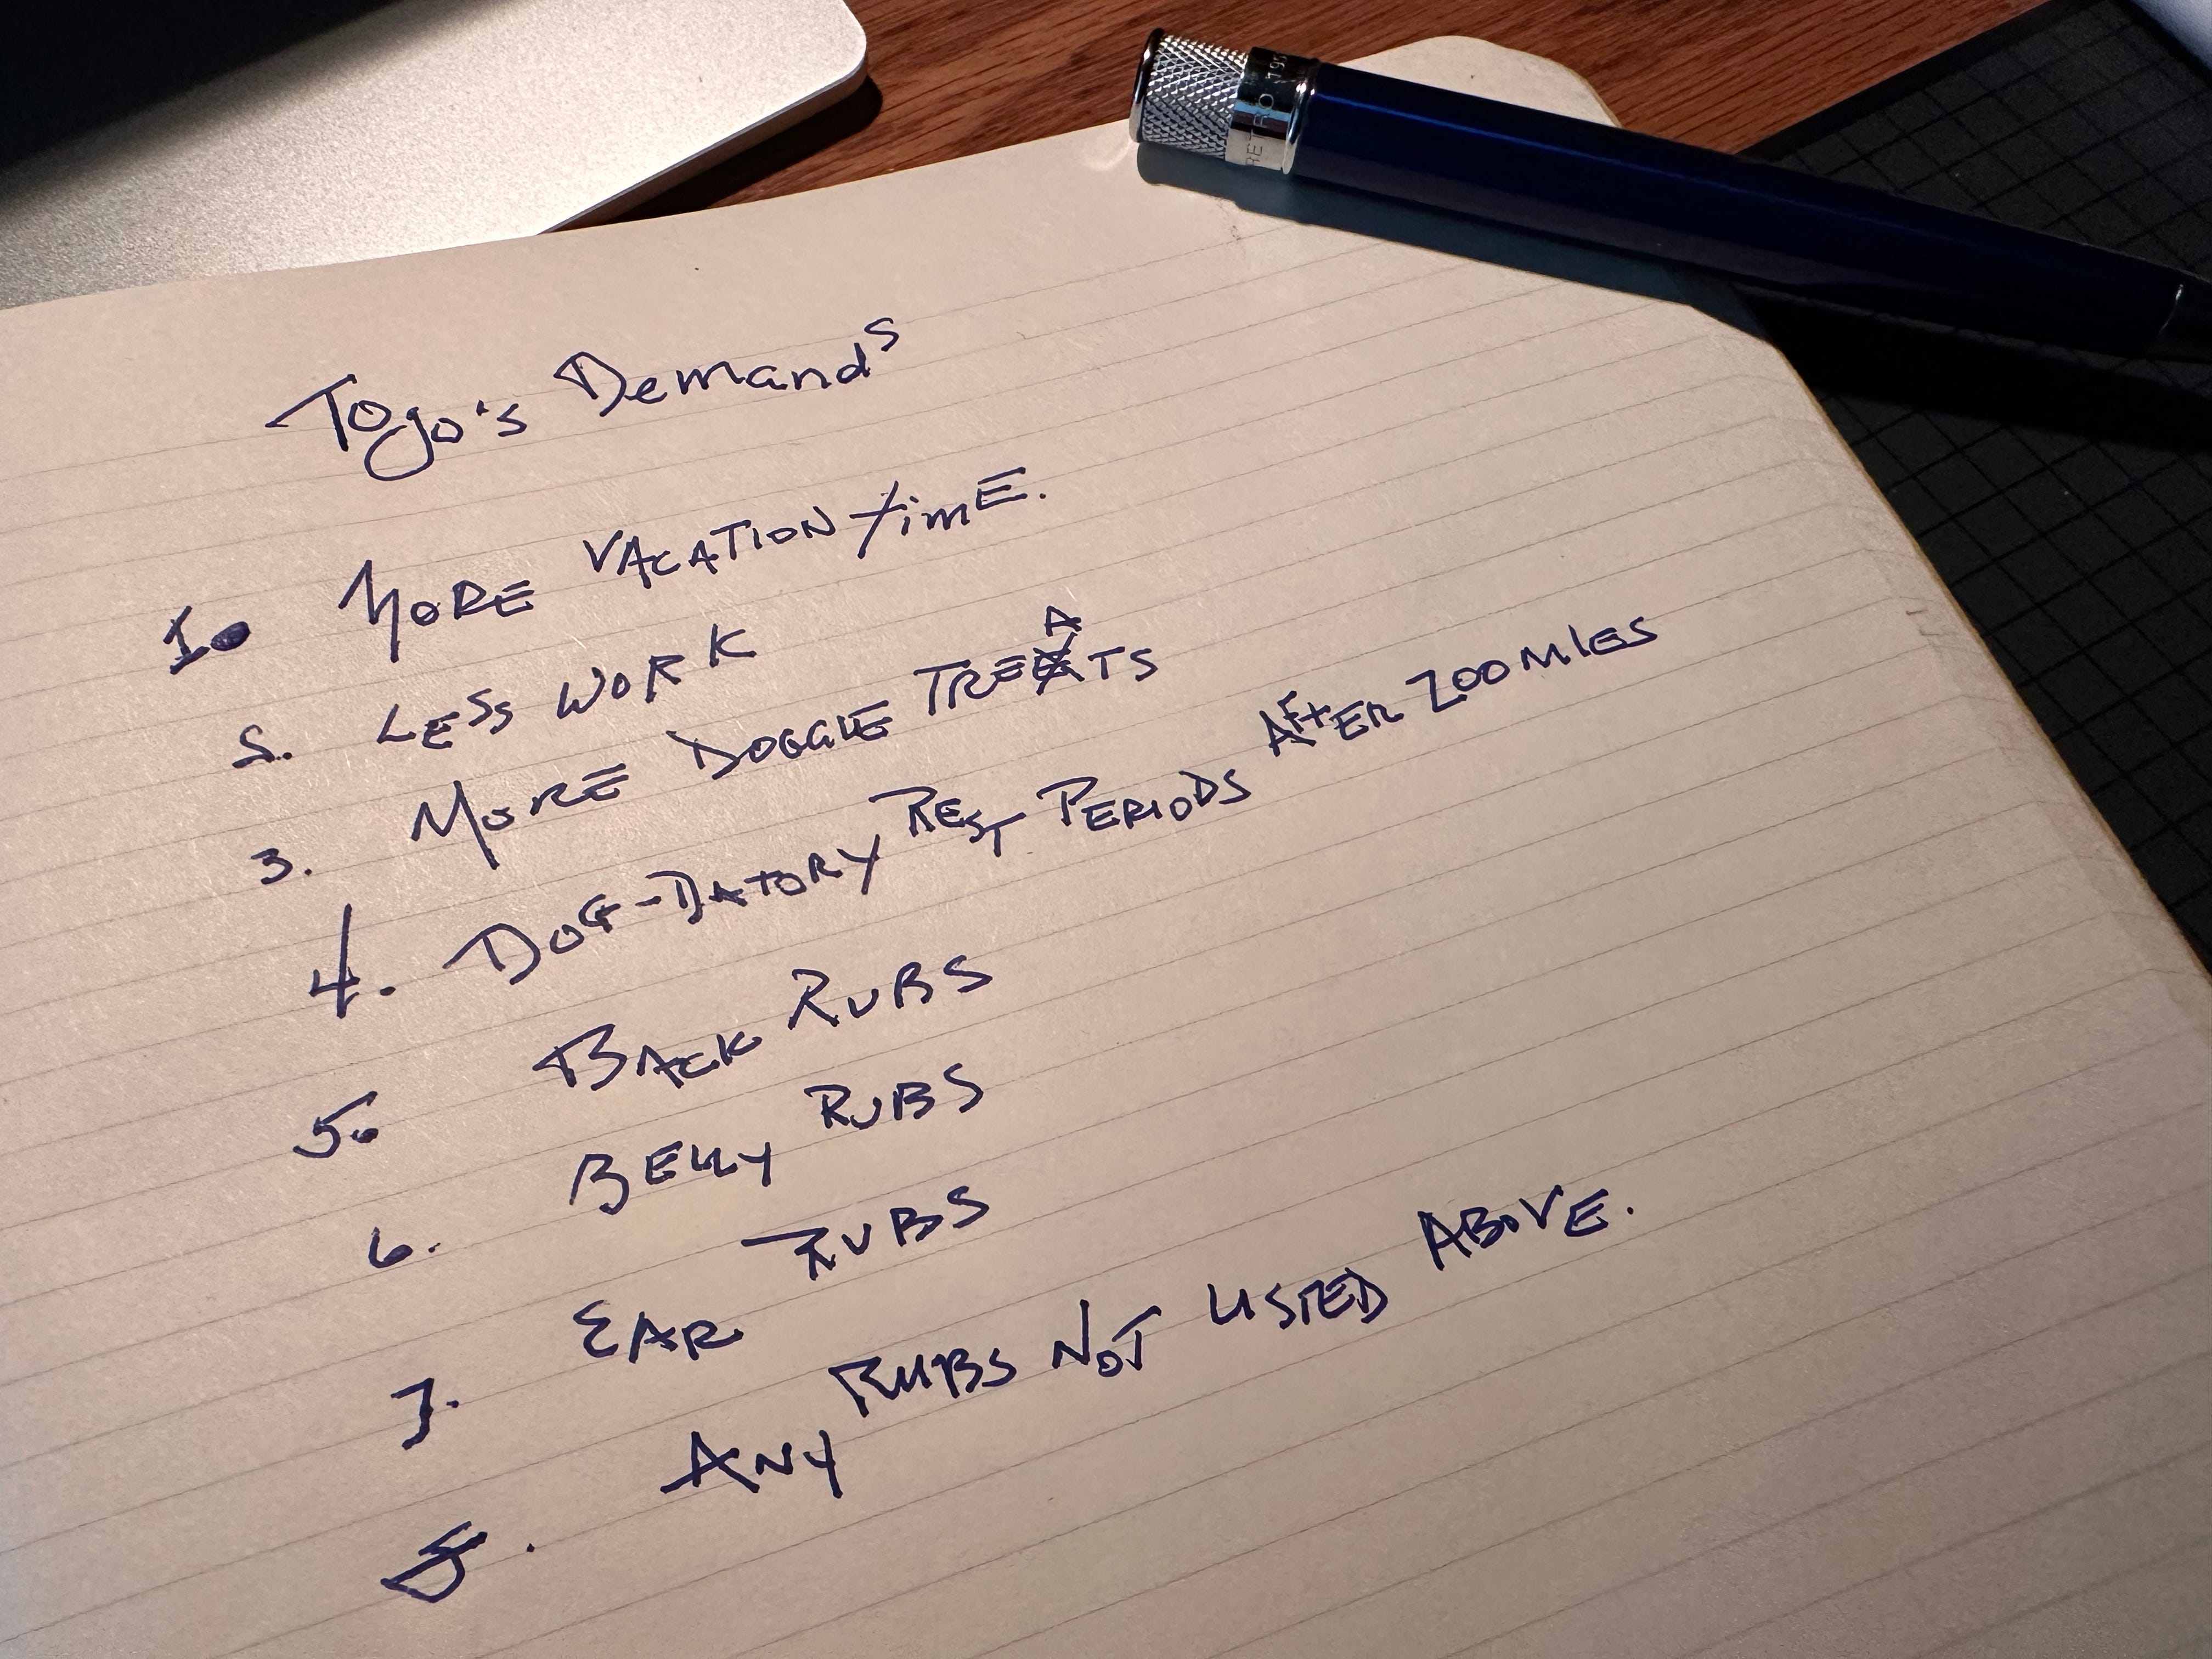 RETRO 195
Togo's Demands
1. MORE VACATION timE.
2. LESS WORK
3. MORE DOGGIE TREATS
4. DOG-DATORY REST PERIODS AFTER ZOOMIES
5. BACK RUBS
6. BELLY RUBS
7. EAR RUBS
8. ANY RUBS NOT LISTED ABOVE.